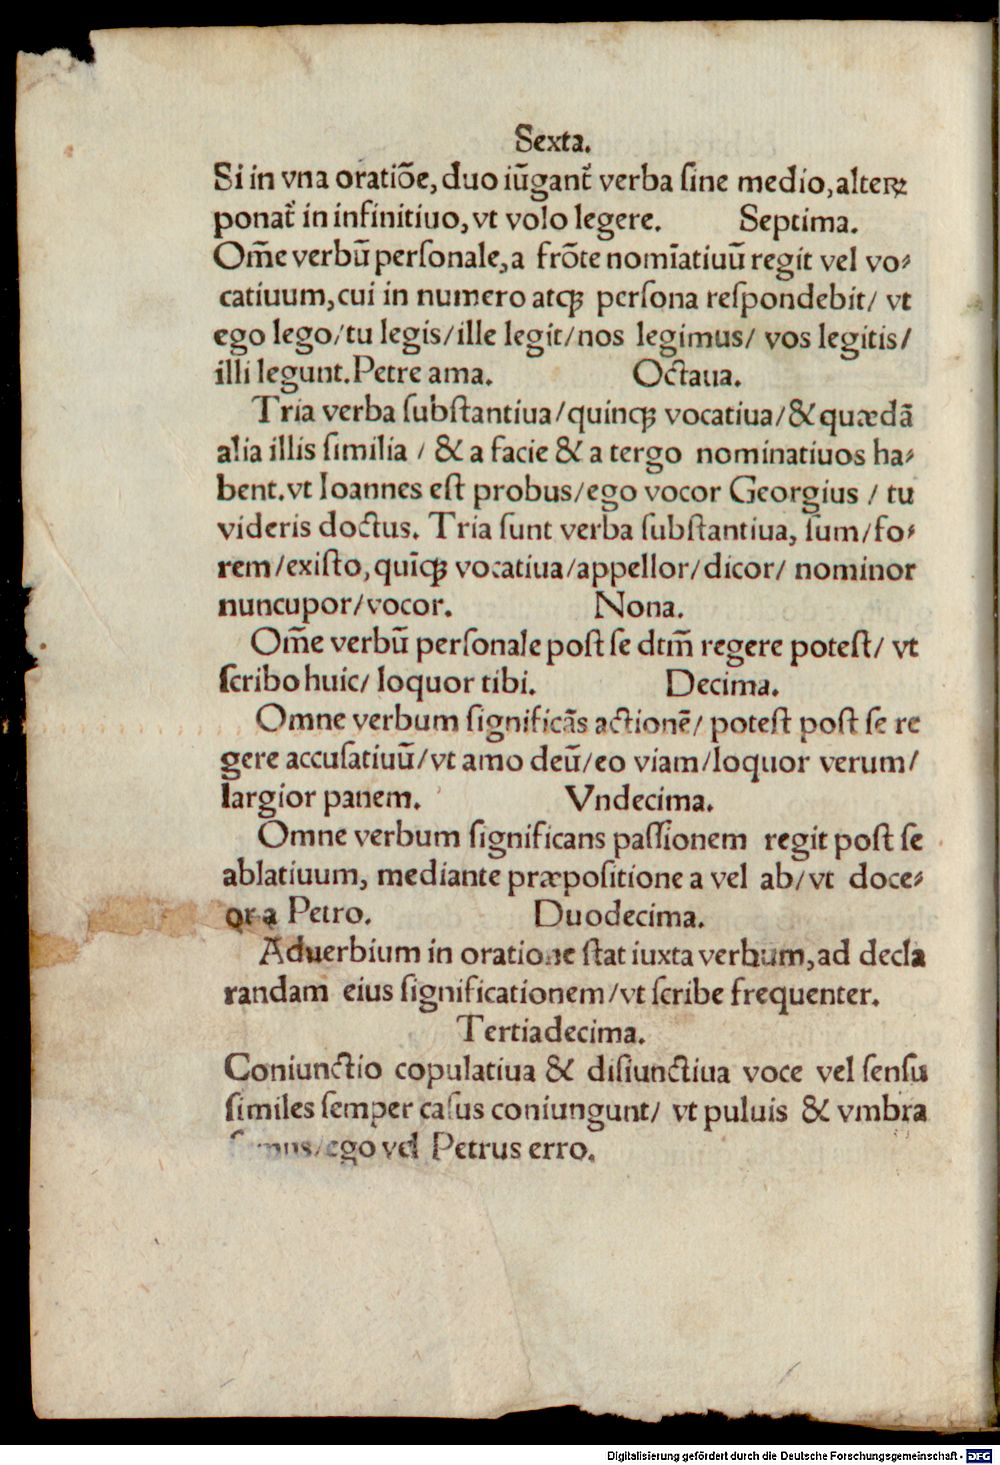 Sexta.
Si in vna oratiōe, duo iūgant᷑ verba ſine medio, alterꝝ
ponat᷑ in infinitiuo, vt volo legere. Septima.
Om̄e verbū perſonale, a frōte nomīatiuū regit vel vo⸗
catiuum, cui in numero atqꝫ perſona reſpondebit/ vt
ego lego/ tu legis/ ille legit/ nos legimus/ vos legitis/
illi legunt. Petre ama. Octaua.
Tria verba ſubſtantiua/ quinqꝫ vocatiua/ & quædā
alia illis ſimilia / & a facie & a tergo nominatiuos ha⸗
bent. vt Ioannes eſt probus/ ego vocor Georgius / tu
videris doctus. Tria ſunt verba ſubſtantiua, ſum/ fo⸗
rem/ exiſto, quīqꝫ vocatiua/ appellor/ dicor/ nominor
nuncupor/ vocor. Nona.
Om̄e verbū perſonale poſt ſe dtm̄ regere poteſt/ vt
ſcribo huic/ loquor tibi. Decima.
Omne verbum ſignificās actionē/ poteſt poſt ſe re
gere accuſatiuū/ vt amo deū/ eo viam/ loquor verum/
largior panem. Vndecima.
Omne verbum ſignificans paſſionem regit poſt ſe
ablatiuum, mediante præpoſitione a vel ab/ vt doce⸗
or a Petro. Duodecima.
Aduerbium in oratione ſtat iuxta verbum, ad decla
randam eius ſignificationem/ vt ſcribe frequenter.
Tertiadecima.
Coniunctio copulatiua & diſiunctiua voce vel ſenſu
ſimiles ſemper caſus coniungunt/ vt puluis & vmbra
ſumus/ ego vel Petrus erro.
Digitalisierung gefördert durch die Deutsche Forschungsgemeinschaft - DFG